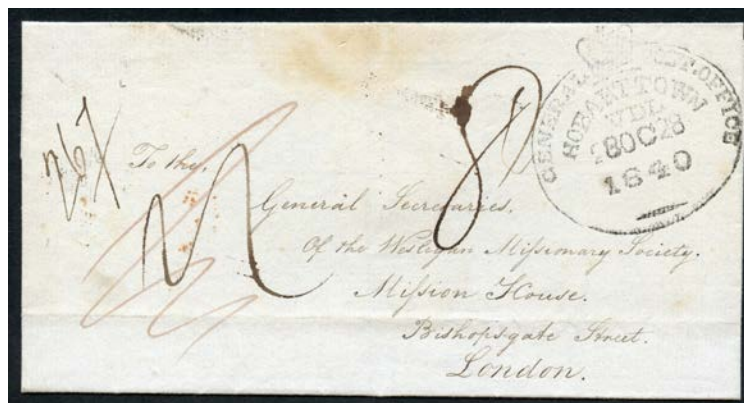 GENERAL POST.OFFICE
HOBART TOWN
VDL
28OC28
1840
8
To the,
General Secretaries.
Of the Wesleyan Miſsionary Society.
Miſsion House.
Bishopsgate Street.
London.